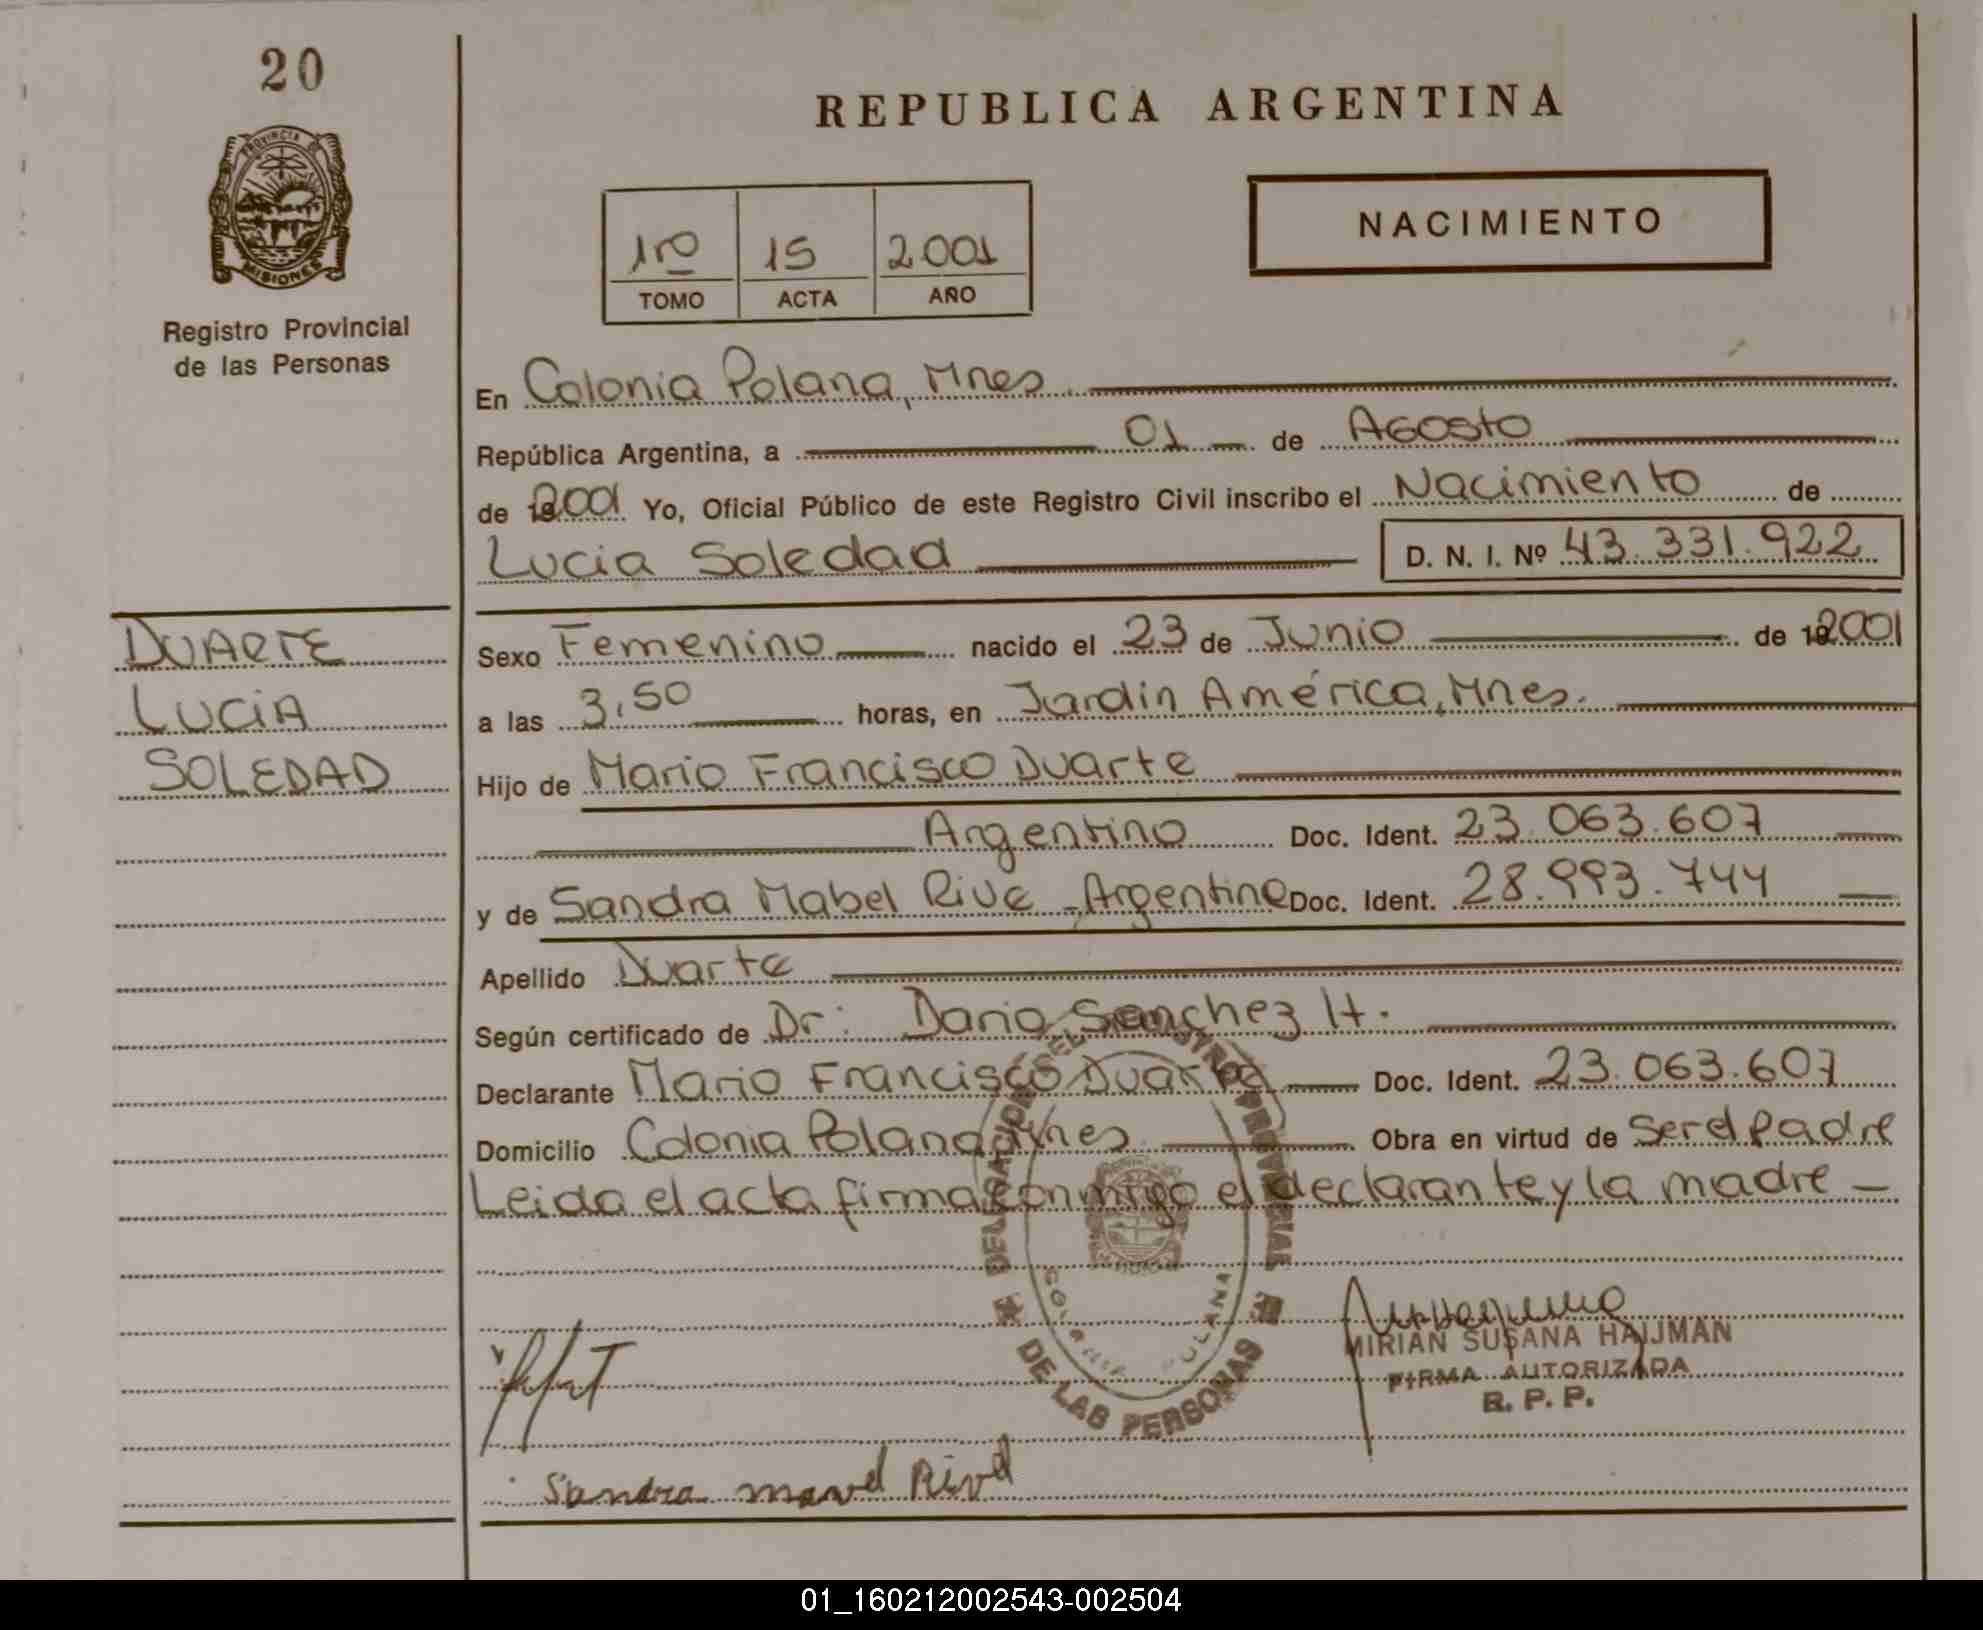 20
PROVINCIA DE
MISIONES
Registro Provincial
de las Personas
REPUBLICA ARGENTINA
1ro 15 2001
TOMO ACTA AÑO
NACIMIENTO
En Colonia Polana, Mnes.
República Argentina, a 01 de Agosto
de 2001 Yo, Oficial Público de este Registro Civil inscribo el Nacimiento de
Lucia Soledad D. N. I. Nº 43.331.922
DUARTE
LUCIA
SOLEDAD
Sexo Femenino nacido el 23 de Junio de 2001
a las 3,50 horas, en Jardín América, Mnes.
Hijo de Mario Francisco Duarte
Argentino Doc. Ident. 23.063.607
y de Sandra Mabel Rive - Argentina Doc. Ident. 28.993.744
Apellido Duarte
Según certificado de Dr: Dario Sanchez H.
Declarante Mario Francisco Duarte Doc. Ident. 23.063.607
Domicilio Colonia Polana, Mnes Obra en virtud de Ser el Padre
Leida el acta firma conmigo el declarante y la madre -
DELEGACION DEL REGISTRO PROVINCIAL
DE LAS PERSONAS
COLONIA POLANA
MIRIAN SUSANA HAIJMAN
FIRMA AUTORIZADA
R. P. P.
Sandra mavel Rive
01_160212002543-002504